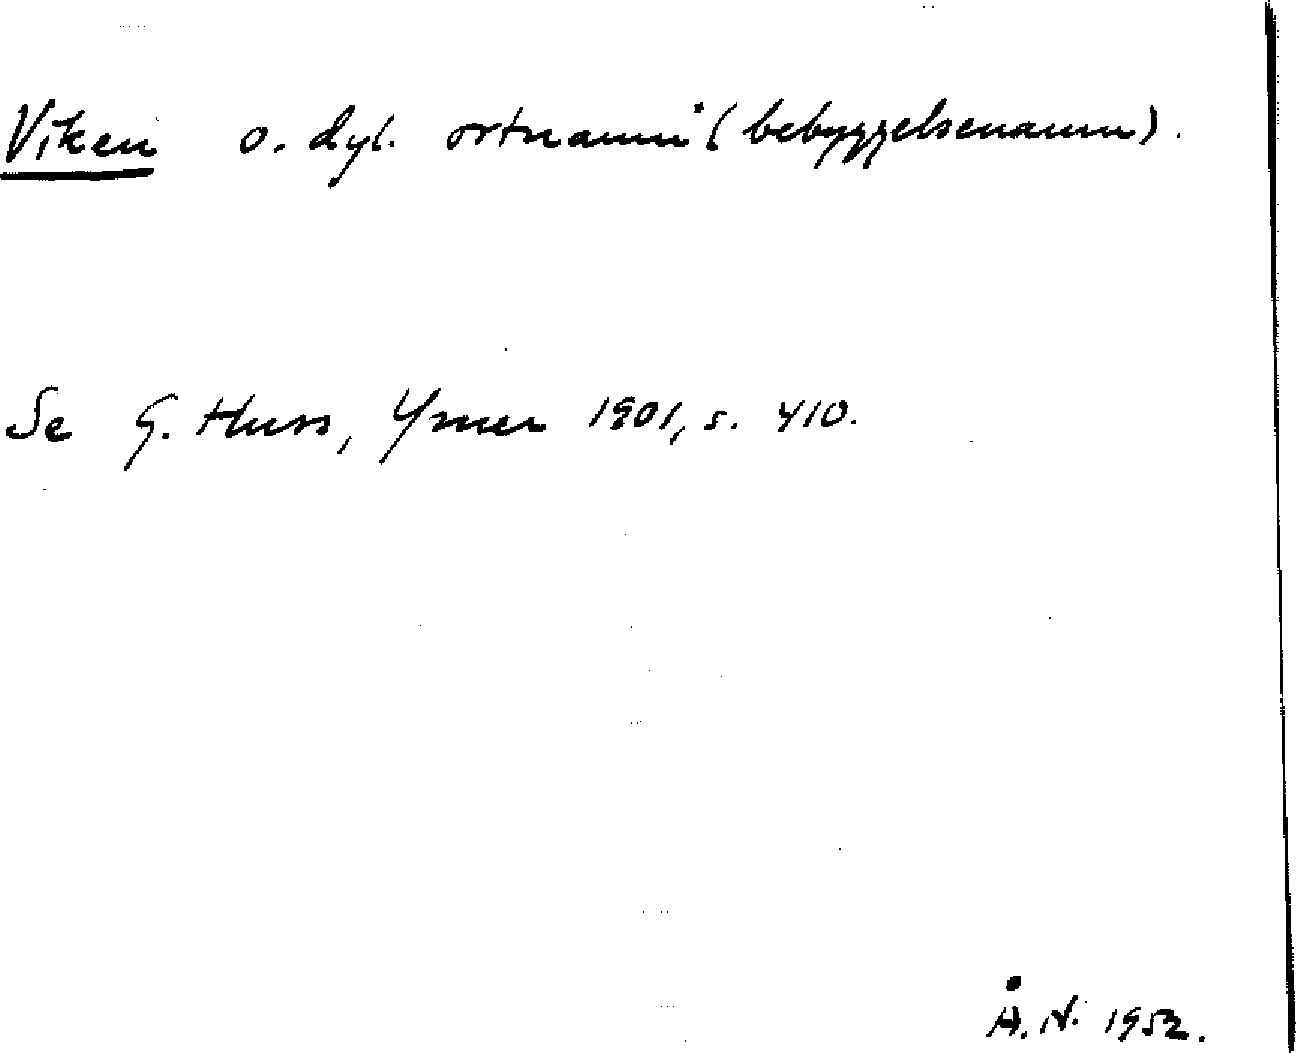 Viken o. dyl. ortnamn (bebyggelsenamn).
Se G. Huss, Ymer 1901, s. 410.
Å. N. 1952.